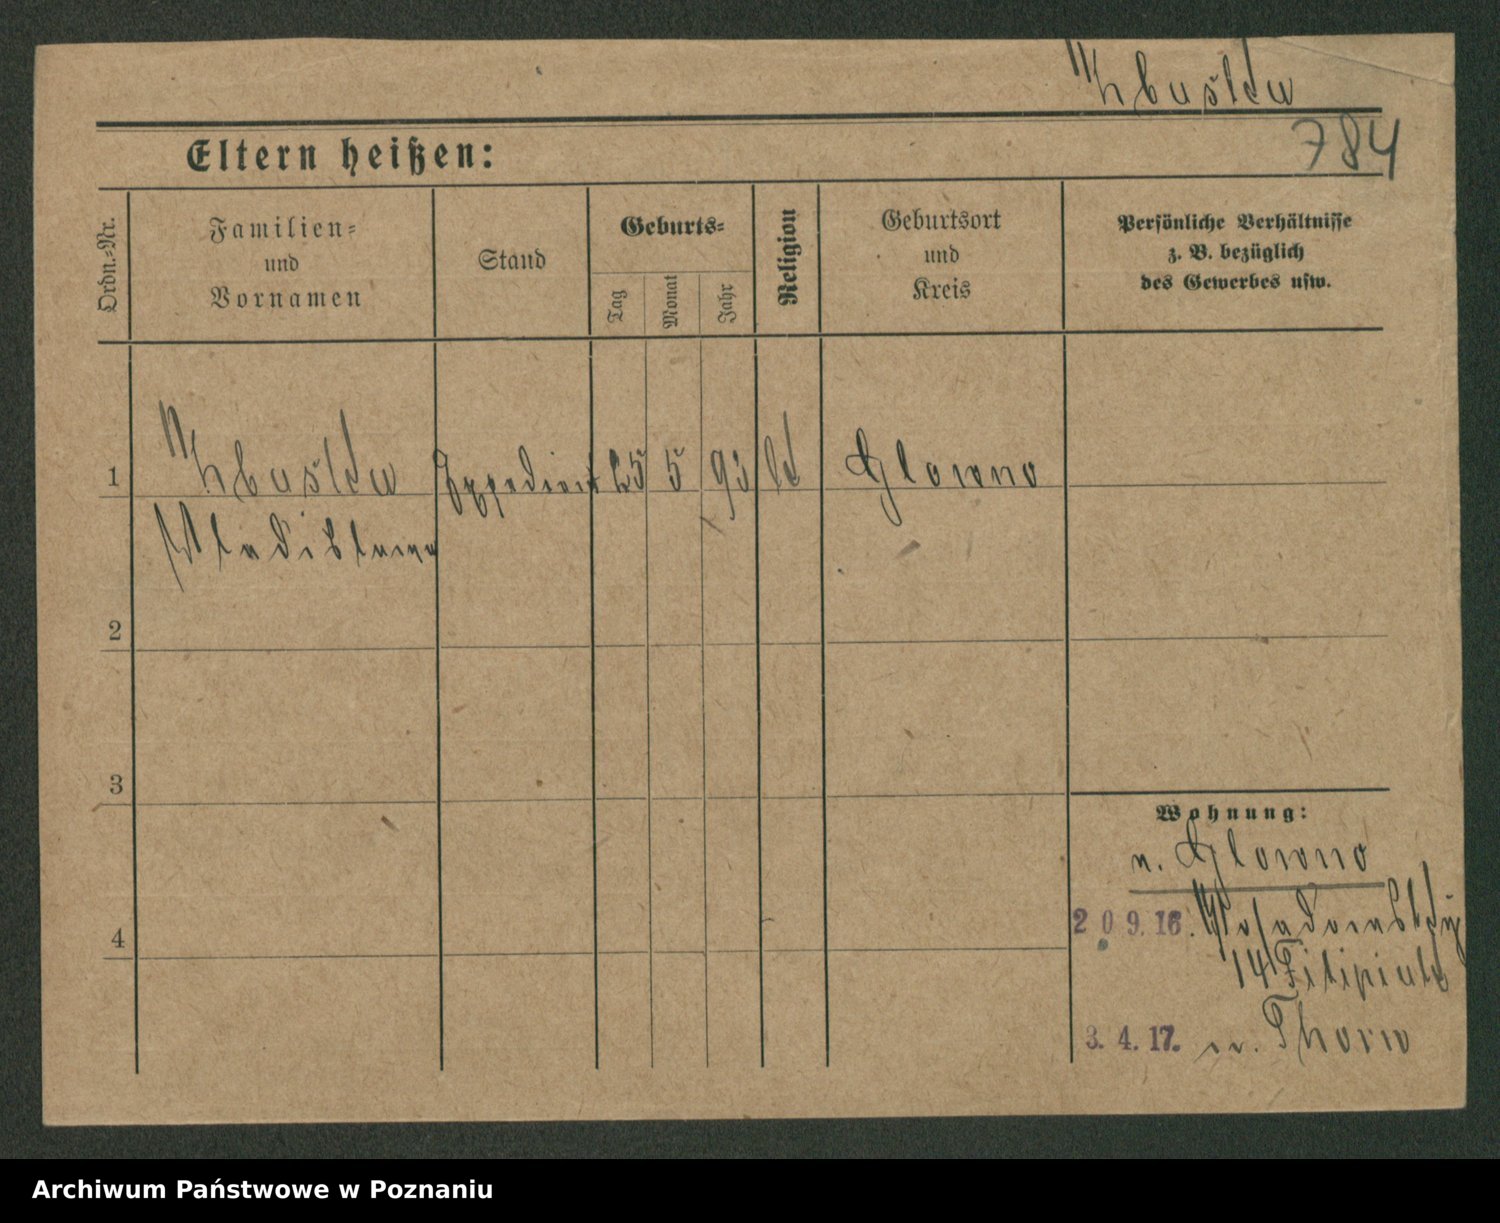 784
Eltern heißen:
Ordn.-Nr.
Familien-
und
Vornamen
Stand
Geburts-
Tag
Monat
Jahr
Religion
Geburtsort
und
Kreis
Persönliche Verhältnisse
z. B. bezüglich
des Gewerbes usw.
1
25 5 93 Glowno
Wladislawa
2
3
Wohnung:
n. Glowno
20 9. 16.
14
4
3. 4. 17. n. Thorn
Archiwum Państwowe w Poznaniu